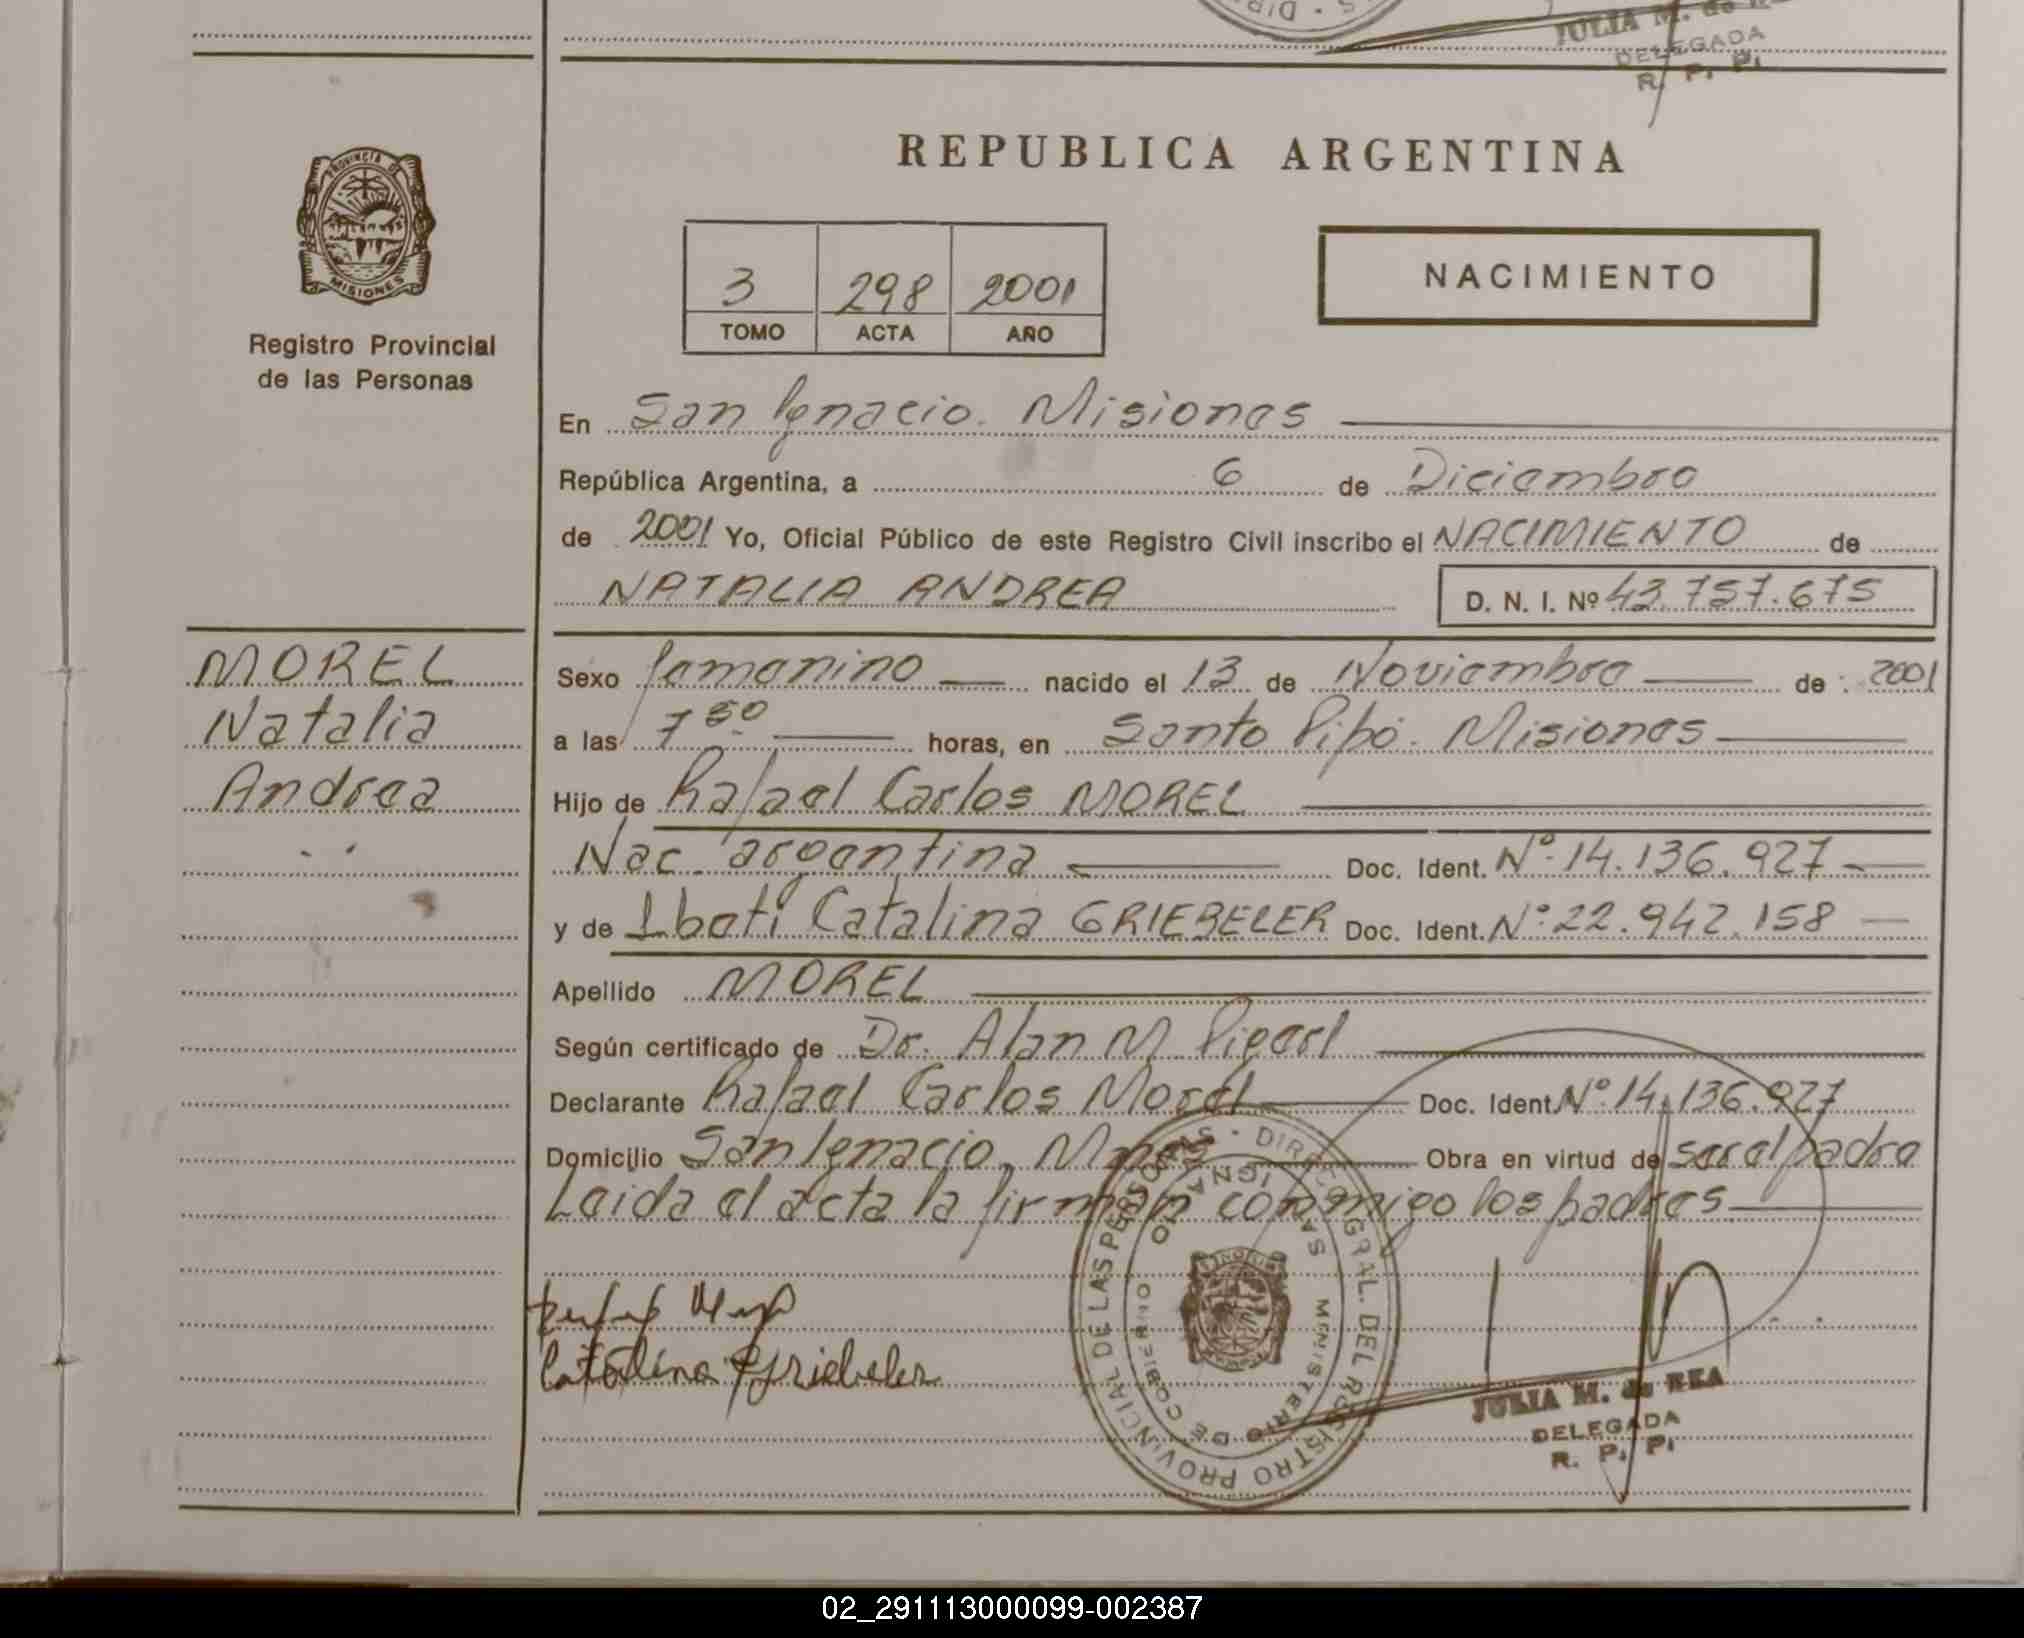 JULIA M. de
DELEGADA
R. P. P.
PROVINCIA DE
MISIONES
Registro Provincial
de las Personas
REPUBLICA ARGENTINA
3 298 2001
TOMO ACTA AÑO
NACIMIENTO
En San Ignacio. Misiones
República Argentina, a 6 de Diciembre
de 2001 Yo, Oficial Público de este Registro Civil inscribo el NACIMIENTO de
NATALIA ANDREA D. N. I. Nº 43.757.675
MOREL
Natalia
Andrea
Sexo femenino nacido el 13 de Noviembre de 2001
a las 7 30 horas, en Santo Pipó. Misiones
Hijo de Rafael Carlos MOREL
Nac. argentina Doc. Ident. Nº 14.136.927
y de Iboti Catalina GRIEBELER Doc. Ident. Nº 22.942.158
Apellido MOREL
Según certificado de Dr. Alan M.
Declarante Rafael Carlos Morel Doc. Ident. Nº 14.136.927
Domicilio San Ignacio, Mnes Obra en virtud de ser el padre
Leida el acta la firman conmigo los padres
Catalina Griebeler
DIREC. GRAL. DEL REGISTRO PROVINCIAL DE LAS PERSONAS
SAN IGNACIO
MINISTERIO DE GOBIERNO
JULIA M. de REA
DELEGADA
R. P. P.
02_291113000099-002387